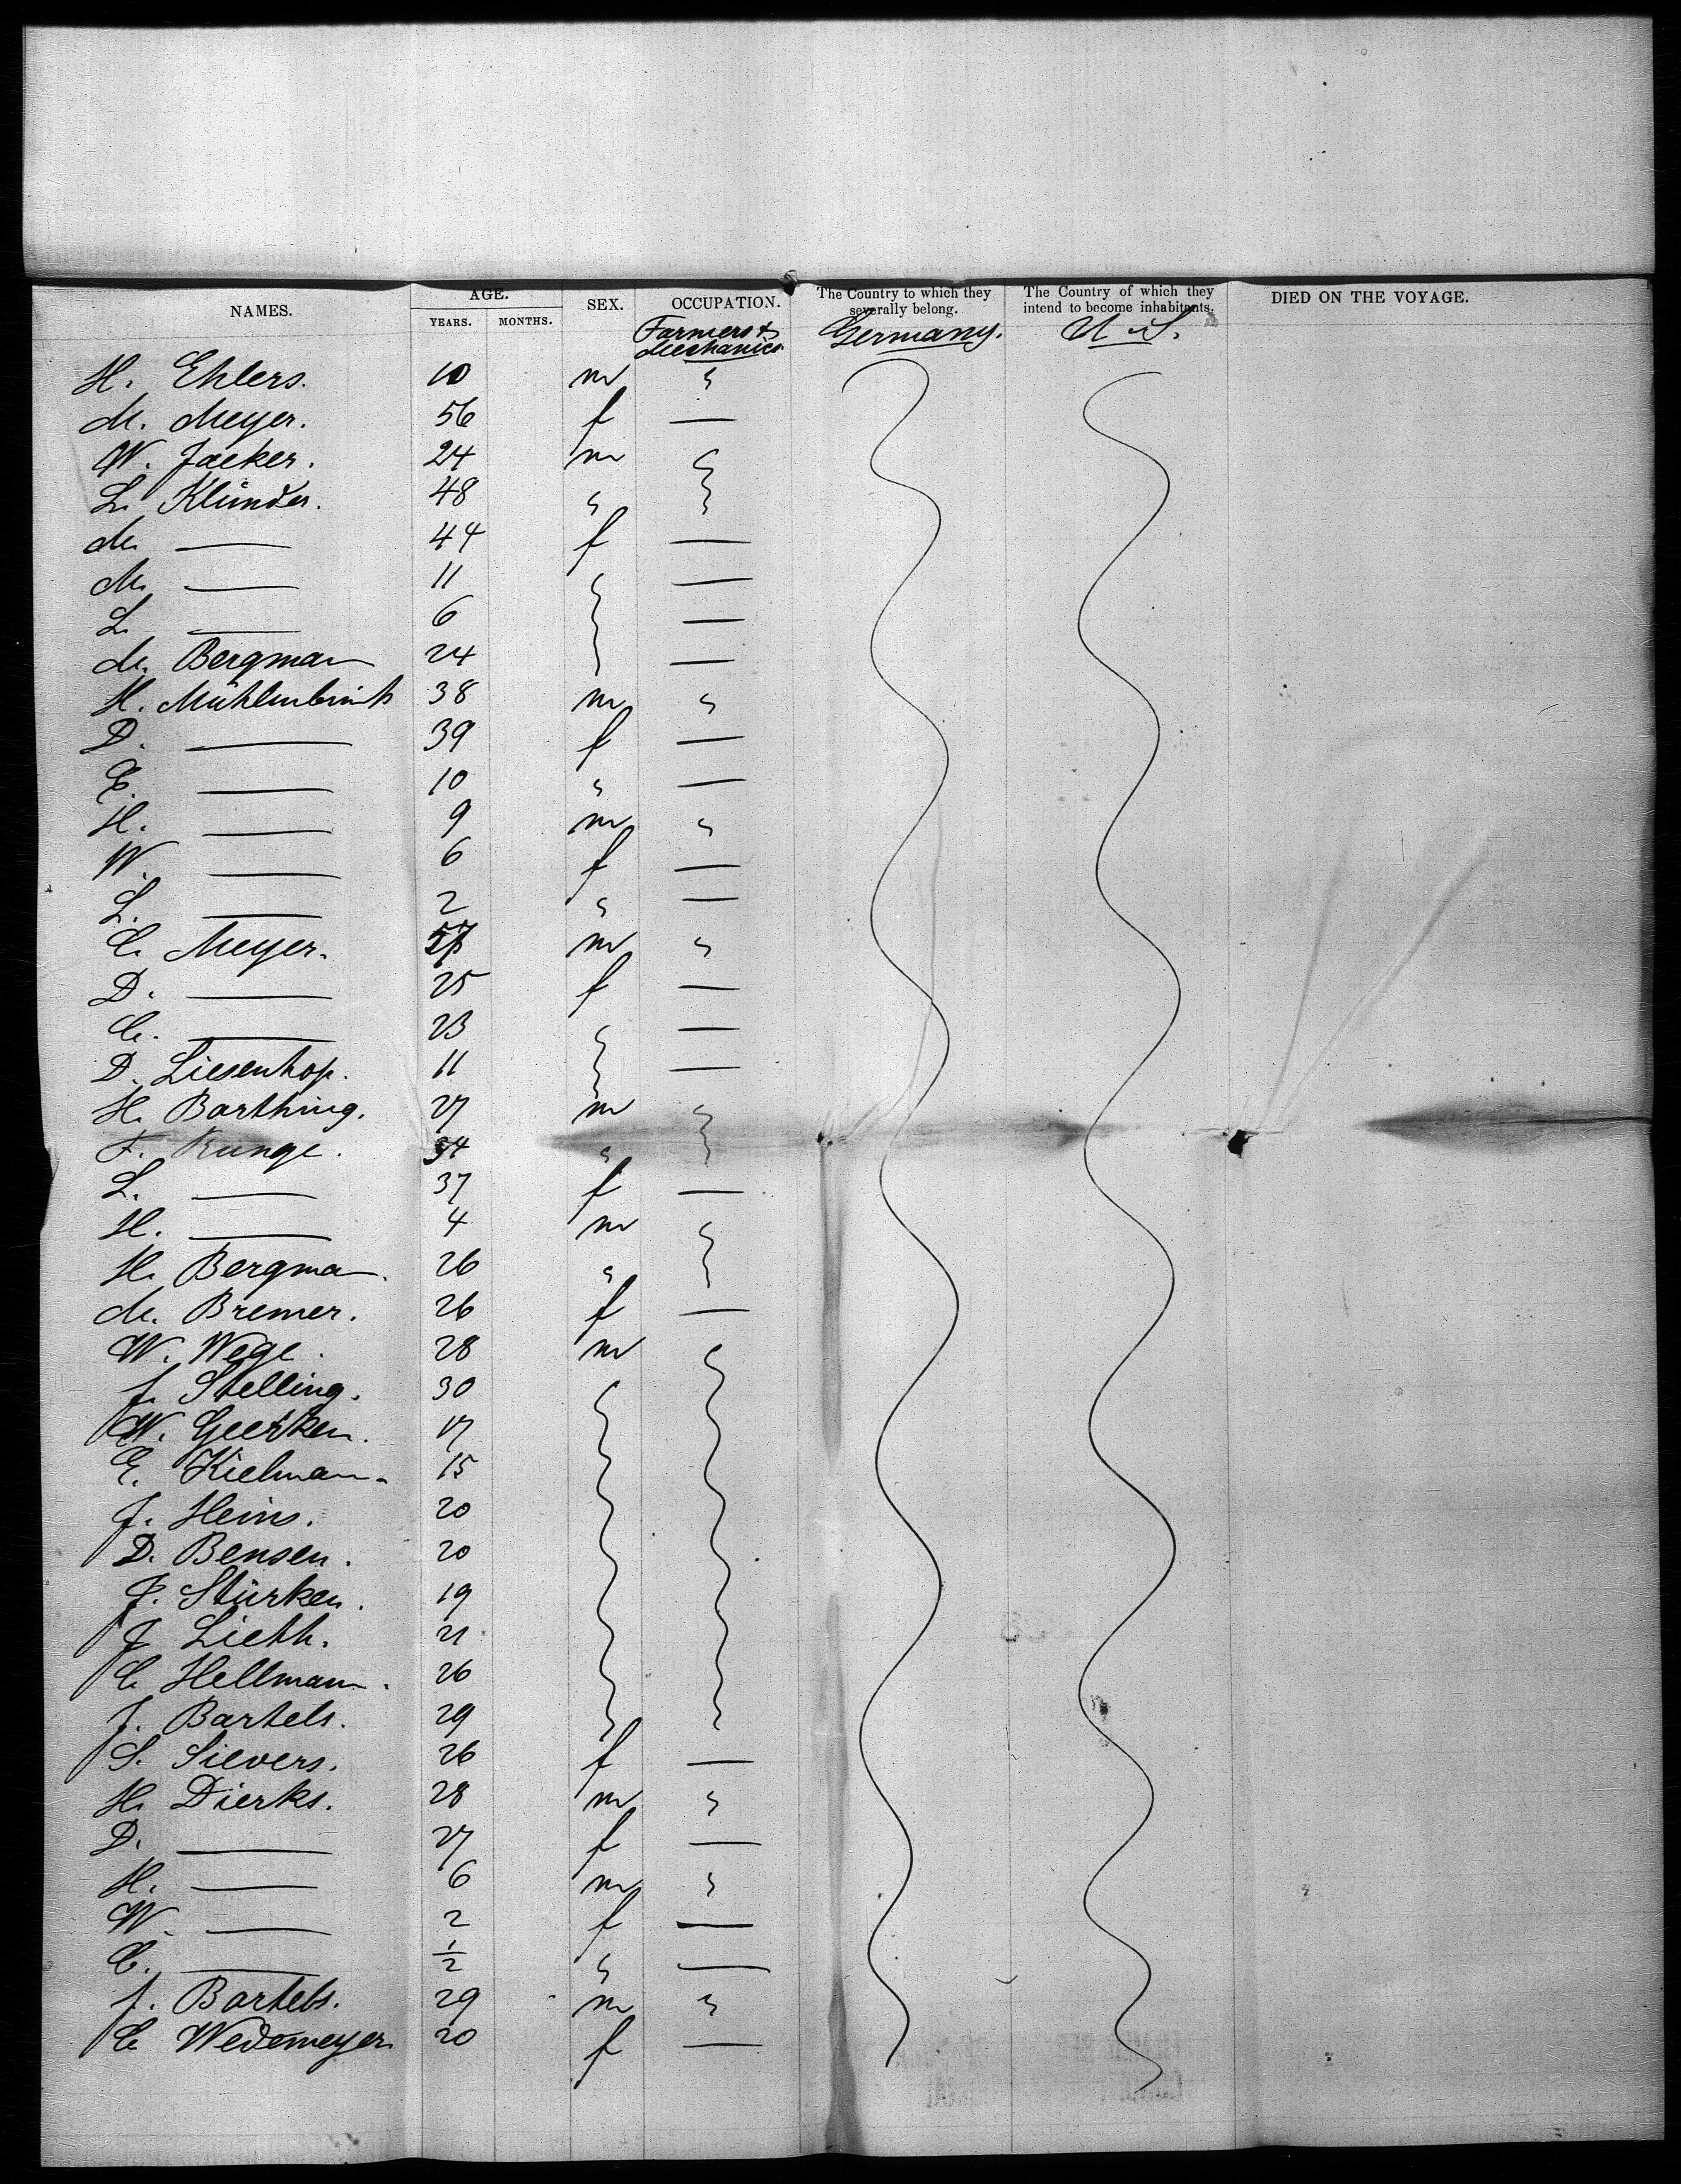 NAMES. AGE. SEX. OCCUPATION. The Country to which they severally belong. The Country of which they intend to become inhabitants. DIED ON THE VOYAGE.
YEARS. MONTHS.
Farmers & Mechanics Germany. U.S.
H. Ehlers. 10 m "
M. Meyer. 56 f —
W. Jacker. 24 m "
L. Klünder. 48 " "
M. — 44 f —
M. — 11 " —
L. — 6 " —
M. Bergman 24 " —
H. Mühlenbrink 38 m "
D. — 39 f —
E. — 10 " —
H. — 9 m "
W. — 6 f —
L. — 2 " —
C. Meyer. m "
D. — 25 f —
C. — 23 " —
D. Liesenhop. 11 " —
H. Barthing. 27 m "
F. Runge. 34 " "
L. — 37 f —
H. — 4 m "
H. Bergman. 26 " "
M. Bremer. 26 f —
W. Wege. 28 m "
J. Stelling. 30 " "
W. Geerken. 17 " "
E. Kielman. 15 " "
J. Heins. 20 " "
D. Bensen. 20 " "
J. Stürken. 19 " "
J. Lieth. 21 " "
C. Hellmann. 26 " "
J. Bartels. 29 " "
S. Sievers. 26 f —
H. Dierks. 28 m "
D. — 27 f —
H. — 6 m "
W. — 2 f —
C. — ½ " —
J. Bartels. 29 m "
C. Wedemeyer 20 f —